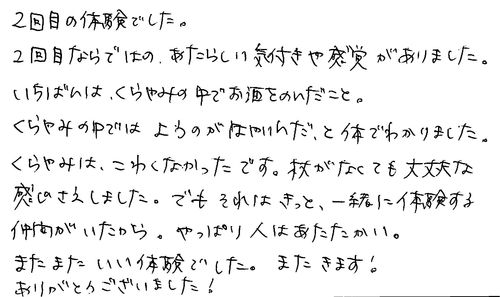 2回目の体験でした。
2回目ならではの、あたらしい気付きや感覚がありました。
いちばんは、くらやみの中でお酒をのんだこと。
くらやみの中では ようのがはやいんだ、と体でわかりました。
くらやみは、こわくなかったです。杖がなくても大丈夫な
感じさえしました。でも それは きっと、一緒に体験する
仲間がいたから。やっぱり人はあたたかい。
またまた いい体験でした。また きます！
ありがとうございました！